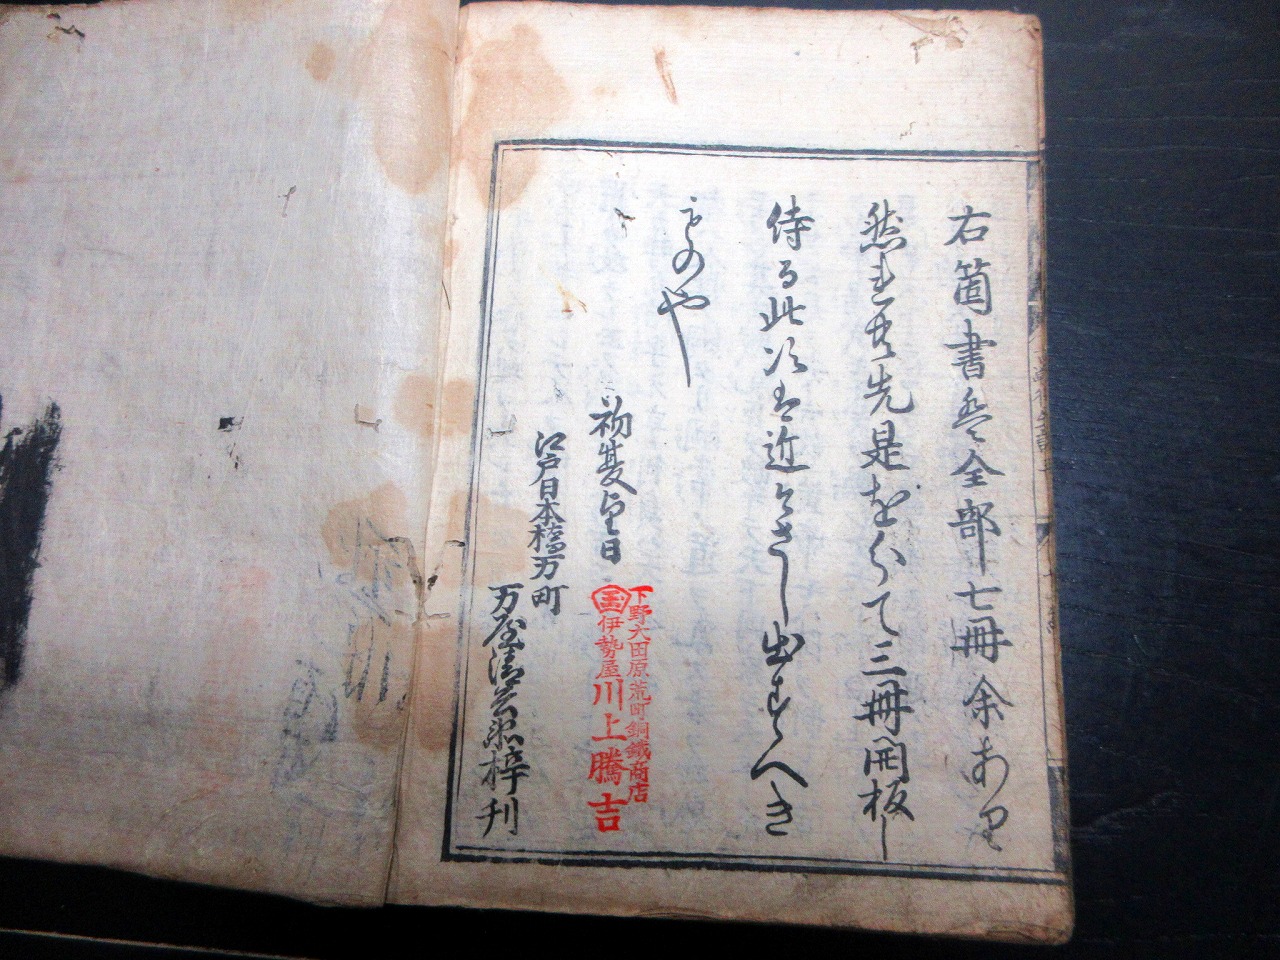 右箇書巻全部七冊余あり
然レ共先是をわけて三冊開板し
侍る此次は近々さし出すへき
ものや
初夏良日
江戸日本橋万町
万屋清兵衛梓刊
下野大田原荒町銅鐵商店
伊勢屋川上騰吉